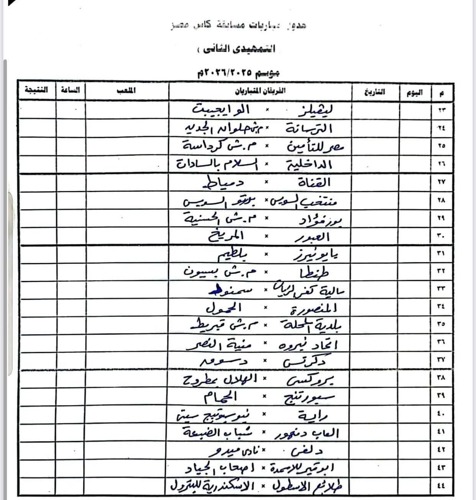 جدول مباريات مسابقة كأس مصر
( التمهيدى الثانى )
موسم ٢٠٢٦/٢٠٢٥م
م اليوم التاريخ الفريقان المتباريان الملعب الساعة النتيجة
٢٣ ليفيلز × الوايجيبت
٢٤ الترسانة × م.ش حلوان الجديد
٢٥ مصر للتأمين × م.ش كرداسة
٢٦ الداخلية × السلام بالسادات
٢٧ القناة × دمياط
٢٨ منتخب السويس × السويس
٢٩ بورفؤاد × م.ش الحسنية
٣٠ العبور × المريخ
٣١ بايونيرز × بلطيم
٣٢ طنطا × م.ش بسيون
٣٣ مالية كفر الزيات × سمنود
٣٤ المنصورة × الحمول
٣٥ بلدية المحلة × م.ش قبريط
٣٦ اتحاد نبروه × منية النصر
٣٧ دكرنس × دسوق
٣٨ بروكسى × الهلال بمطروح
٣٩ سبورتنج × الحمام
٤٠ راية × نيوستيج سيتى
٤١ العاب دمنهور × شباب الضبعة
٤٢ دلفى × نادى ميدو
٤٣ ابوقير للاسمدة × اصحاب الجياد
٤٤ طلائع الاسطول × الاسكندرية للبترول